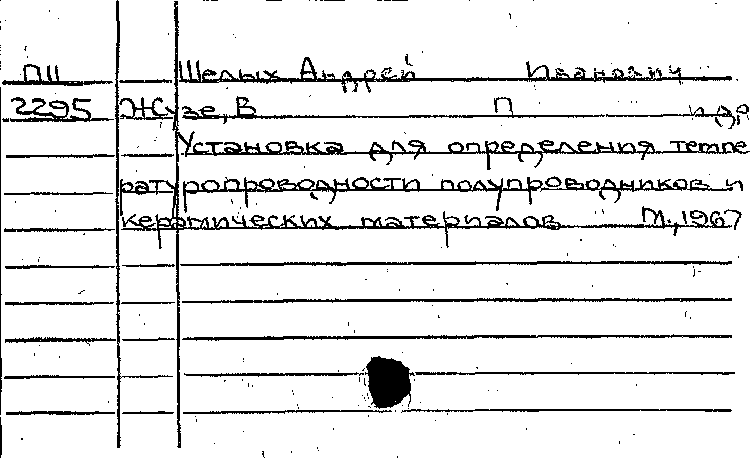 П11 Шелых Андрей Иванович
2295 Жузе, В П и др
Установка для определения темпе
ратуропроводности полупроводников и
керамических материалов М., 1967